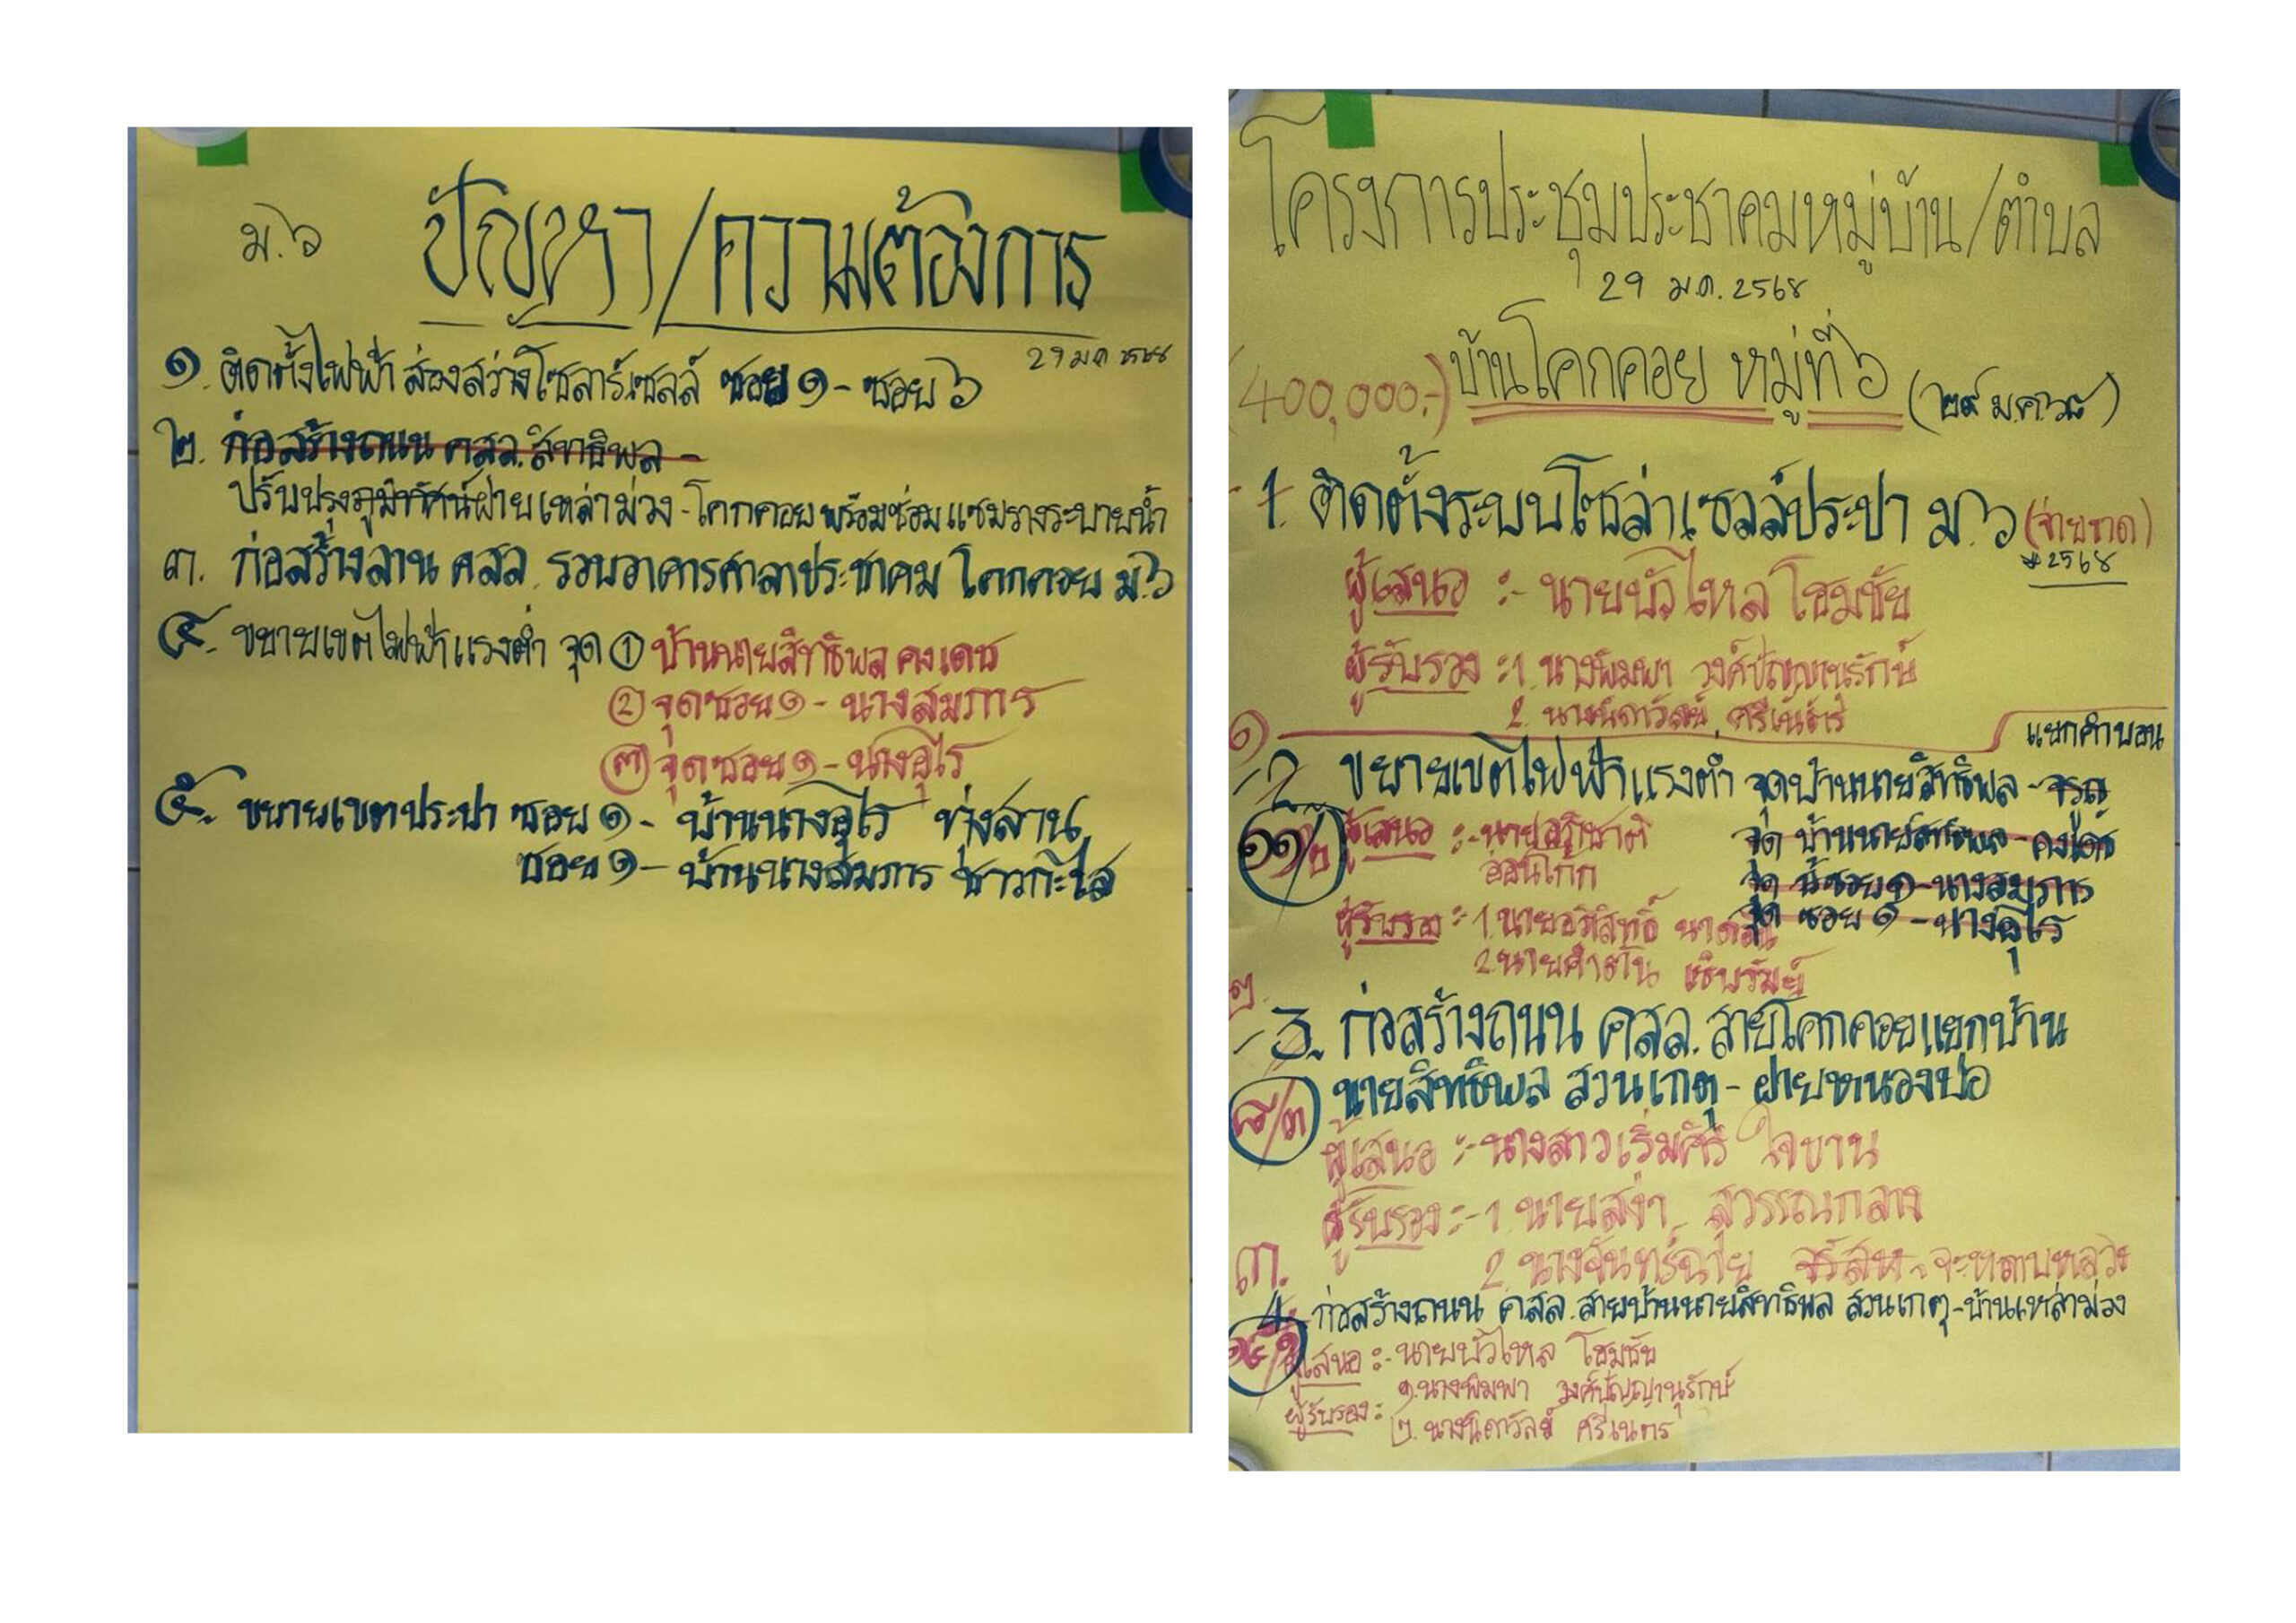 ม.๖ ปัญหา/ความต้องการ
29 ม.ค. ๒๕๖๘
๑. ติดตั้งไฟฟ้าส่องสว่างโซลาร์เซลล์ ซอย ๑ - ซอย ๖
๒. ก่อสร้างถนน คสล. สิทธิพล -
ปรับปรุงภูมิทัศน์ฝายเหล่าม่วง - โคกคอย พร้อมซ่อมแซมรางระบายน้ำ
๓. ก่อสร้างลาน คสล. รอบอาคารศาลาประชาคม โคกคอย ม.๖
๔. ขยายเขตไฟฟ้าแรงต่ำ จุด ① บ้านนายสิทธิพล คงเดช
② จุดซอย ๑ - นางสมภาร
③ จุดซอย ๑ - นางอุไร
๕. ขยายเขตประปา ซอย ๑ - บ้านนางอุไร ทุ่งสาน
ซอย ๑ - บ้านนางสมภาร ชาวกะไส
โครงการประชุมประชาคมหมู่บ้าน/ตำบล
29 ม.ค. 2568
(400,000.-) บ้านโคกคอย หมู่ที่ ๖ (๒๙ ม.ค. ๖๘)
1. ติดตั้งระบบโซล่าเซลล์ประปา ม.๖ (จ่ายขาด)
2568
ผู้เสนอ :- นายบัวไหล โฮมชัย
ผู้รับรอง :- 1. นางพิมพา วงศ์ปัญญานุรักษ์
2. นางนิดาวัลย์ ศรีเนตร
๑
แยกคำบอน
2. ขยายเขตไฟฟ้าแรงต่ำ จุดบ้านนายสิทธิพล -
๑๑/๒ ผู้เสนอ :- นายอภิชาติ
จุด บ้านนายสิทธิพล - คงเดช
อ่อนโก้ก
จุด ซอย ๑ - นางสมภาร
ผู้รับรอง :- 1. นายอภิสิทธิ์
จุด ซอย ๑ - นางอุไร
2. นายคำตัน
๒.
3. ก่อสร้างถนน คสล. สายโคกคอยแยกบ้าน
๘/๓ นายสิทธิพล สวนเกตุ - ฝายหนองบ่อ
ผู้เสนอ :- นางสาวเริ่มศิริ ใจขาน
ผู้รับรอง :- 1. นายสง่า สุวรรณกลาง
๓. 2. นางจันทร์ฉาย
4. ก่อสร้างถนน คสล. สายบ้านนายสิทธิพล สวนเกตุ - บ้านเหล่าม่วง
ผู้เสนอ :- นายบัวไหล โฮมชัย
๑. นางพิมพา วงศ์ปัญญานุรักษ์
ผู้รับรอง :-
๒. นางนิดาวัลย์ ศรีเนตร